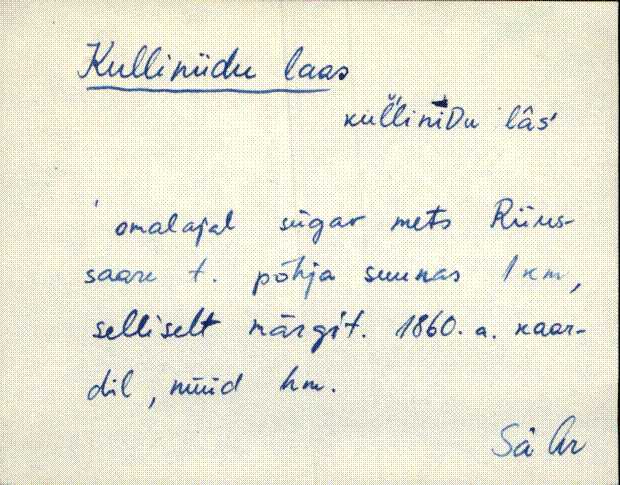 Kulliniidu laas
kulliniDu lâs'
omalajal sügav mets Riius-
saare t. põhja suunas 1 km,
selliselt märgit. 1860. a. kaar-
dil, nüüd hm.
Sä Ar